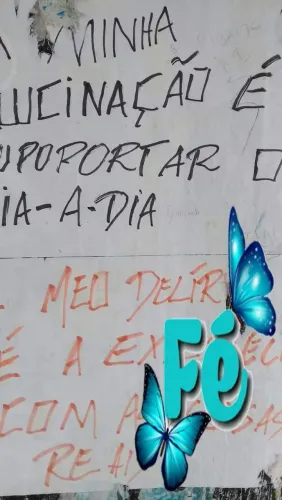 MINHA
LUCINAÇÃO É
UPOPORTAR O
IA-A-DIA
MEU DELÍR
É A EX
Fé
COM A
REAI